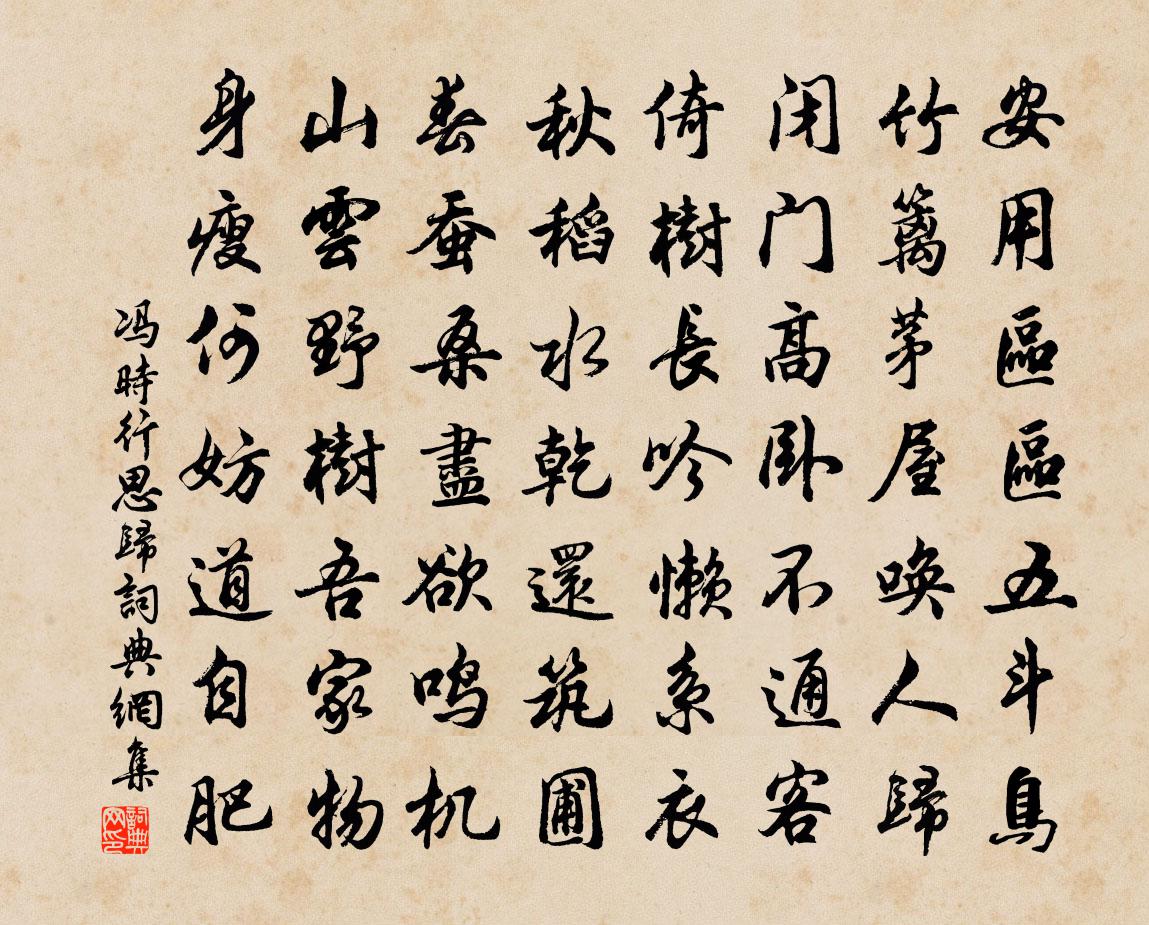 安用區區五斗為
竹籬茅屋喚人歸
闭门髙卧不通客
倚樹長吟懶系衣
秋稻水乾還筑圃
春蚕桑盡欲鸣机
山雲野樹吾家物
身瘦何妨道自肥
冯時行思歸詞典網集
詞典网印